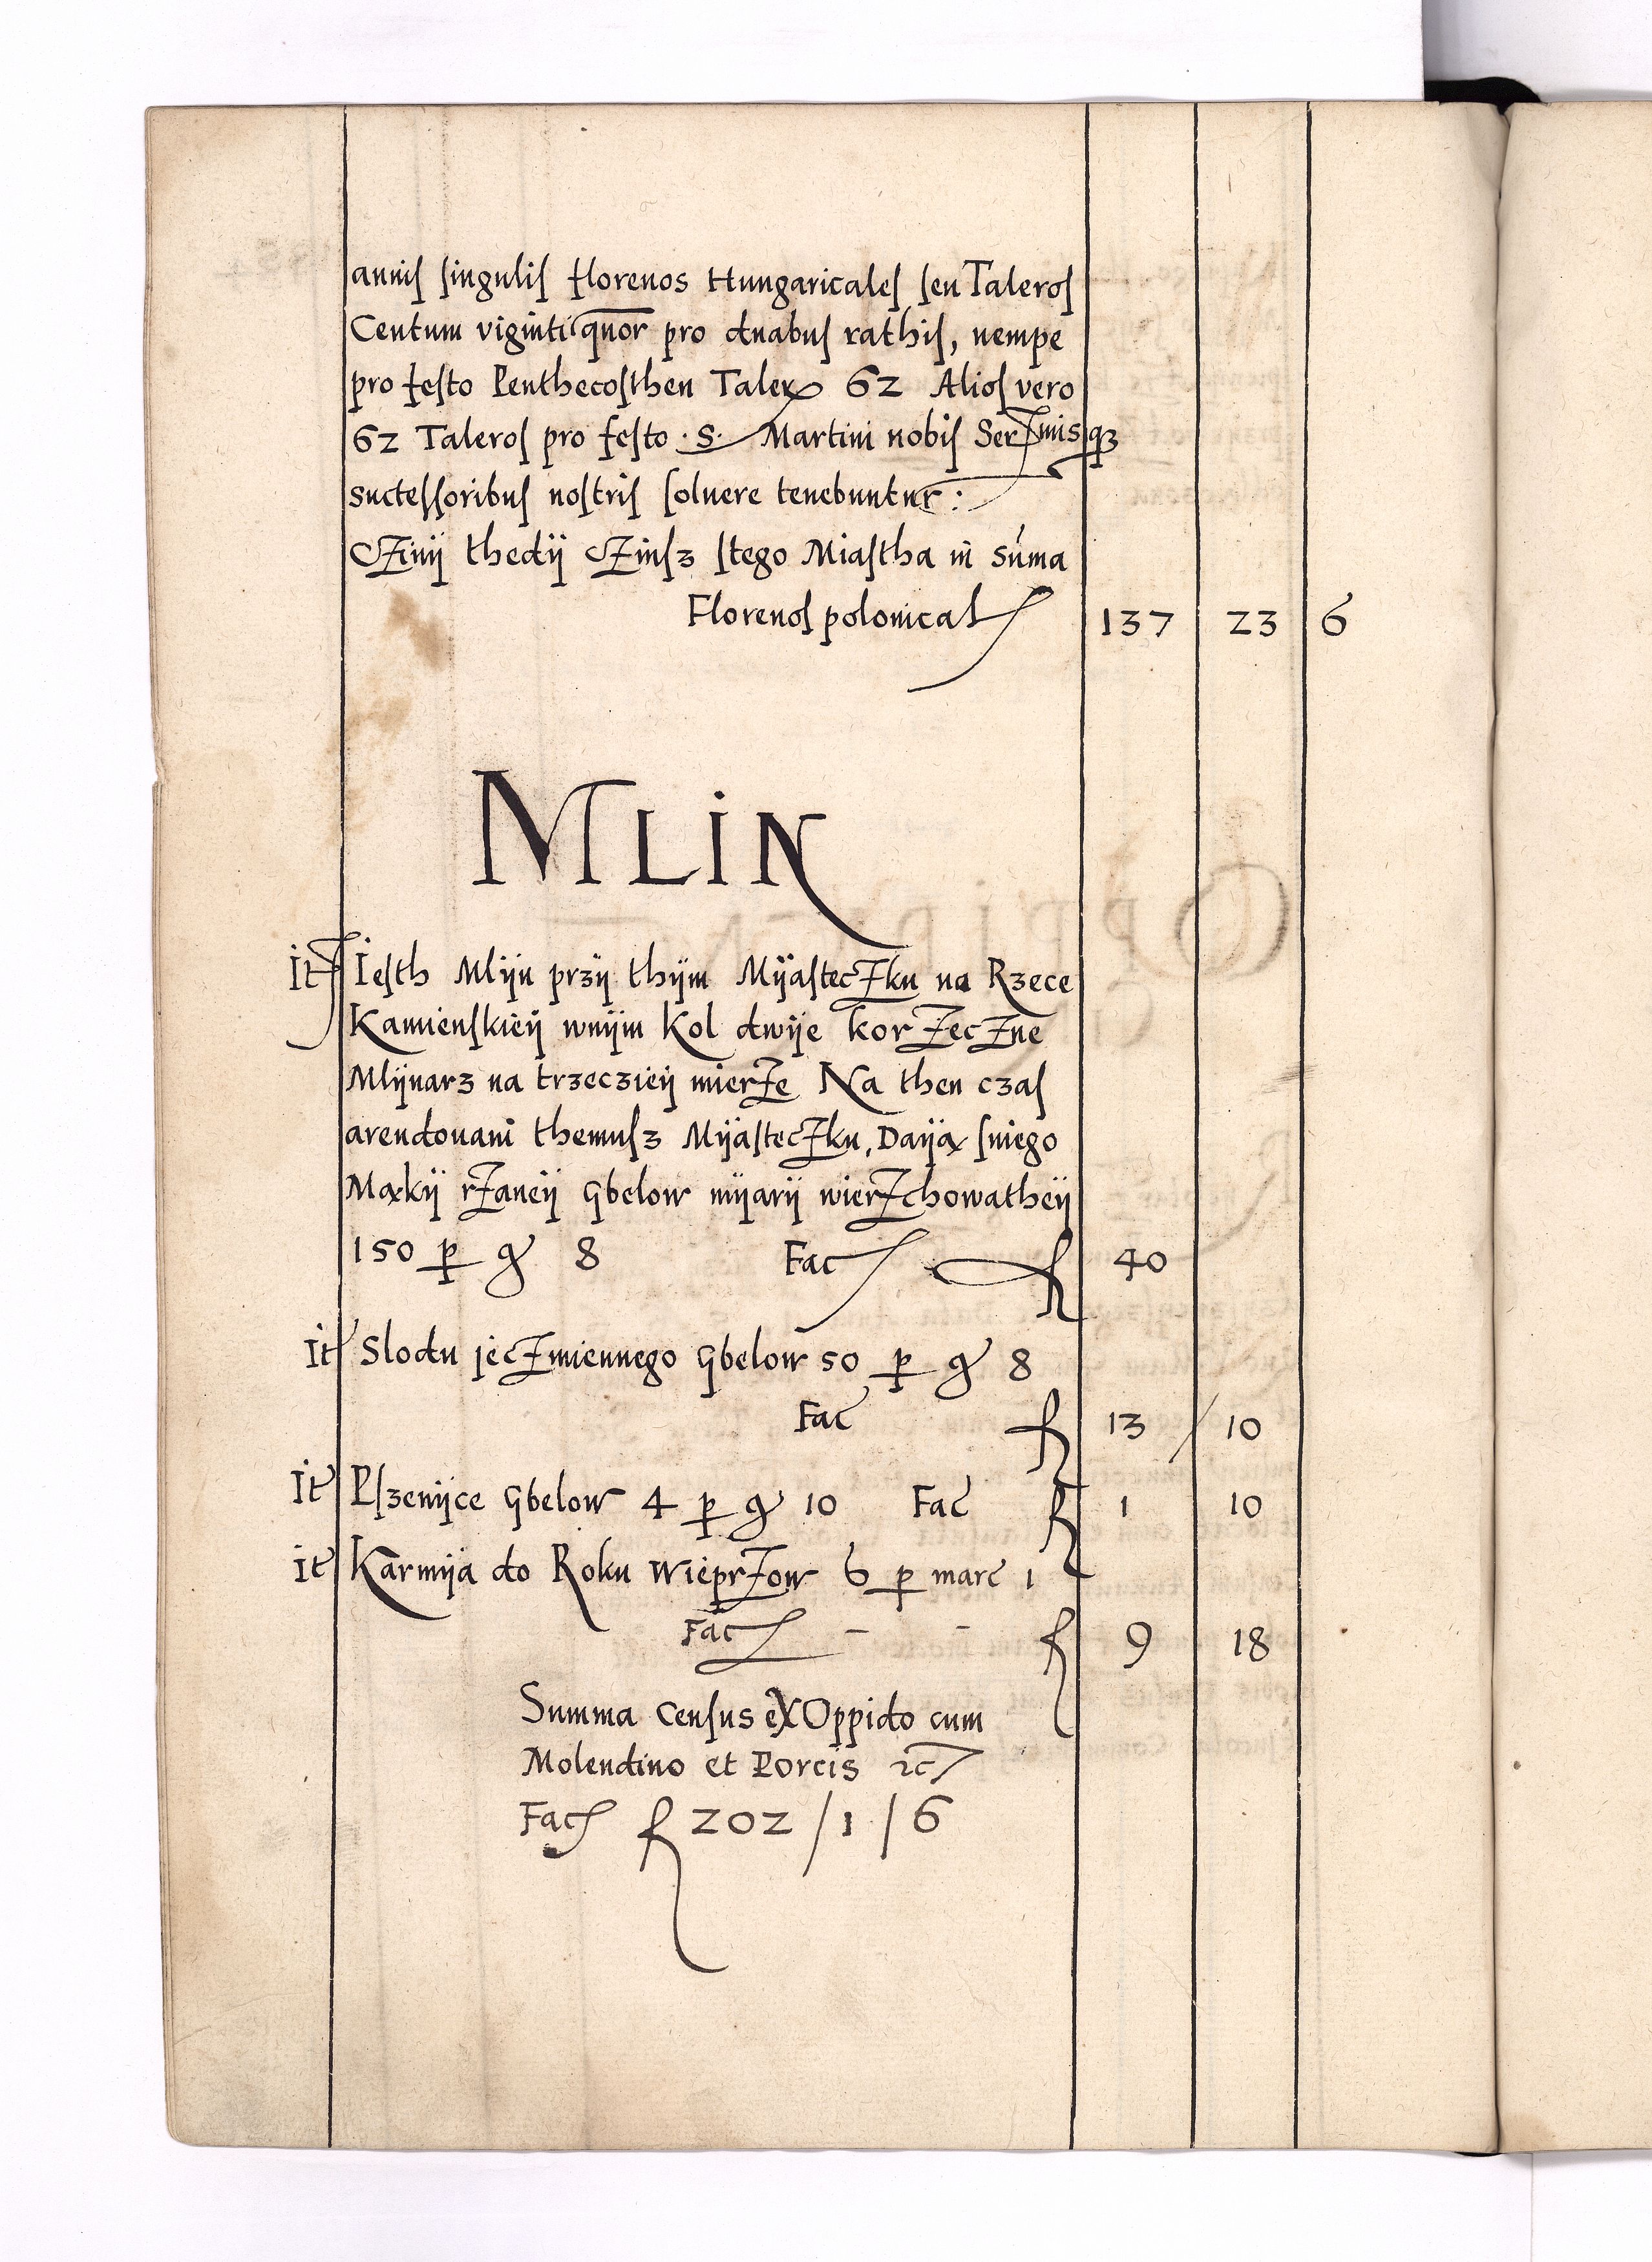 annis singulis florenos Hungaricales seu Taleros
Centum viginti qnor pro duabus rathis, nempe
pro festo Penthecosthen Taler 62 Alios vero
62 Taleros pro festo .S. Martini nobis Sermisqз
successoribus nostris soluere tenebuntur :
Czinij thedij Czinsz stego Miastha in suma
Florenos polonical 137 23 6
MLIN
It Iesth Mlijn przij thijm Mijasteczku na Rzece
Kamienskieij wnijm Kol dwije korzeczne
Mlijnarz na trzeczieij mierze Na then czas
arendouani themusz Mijasteczku, Daija sniego
Mąkij rzaneij Gbelow mijarij wierzchowatheij
150 p g 8 Fac f 40
It Slodu jeczmiennego Gbelow 50 p g 8
Fac f 13 / 10
It Pszenijce Gbelow 4 p g 10 Fac f 1 10
It Karmija do Roku wieprzow 6 p marc 1
Fac - - f 9 18
Summa Census eX Oppido cum
Molendino et Porcis etc
Fac f 202 / 1 / 6